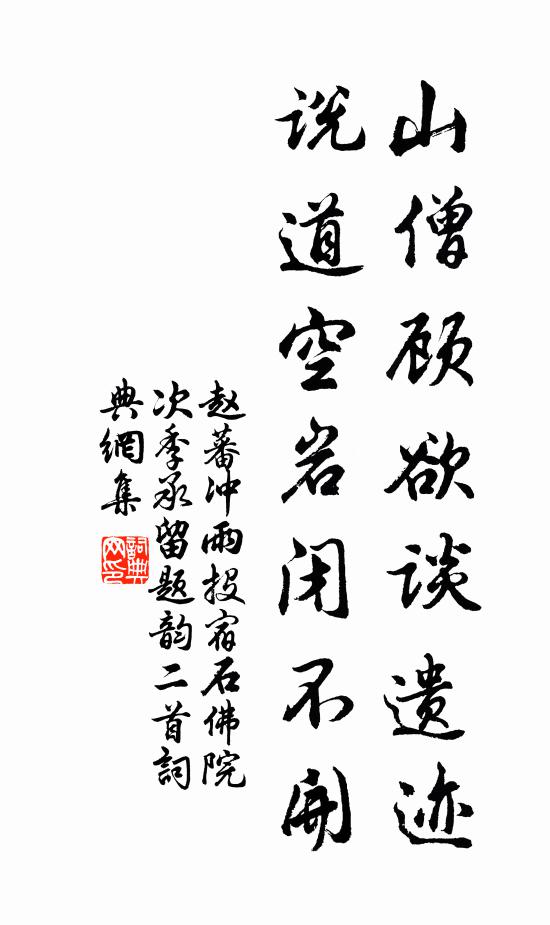 山僧顾欲谈遗迹
说道空岩闭不開
赵蕃冲雨投宿石佛院
次季承留题韵二首詞
典網集
詞典
网印